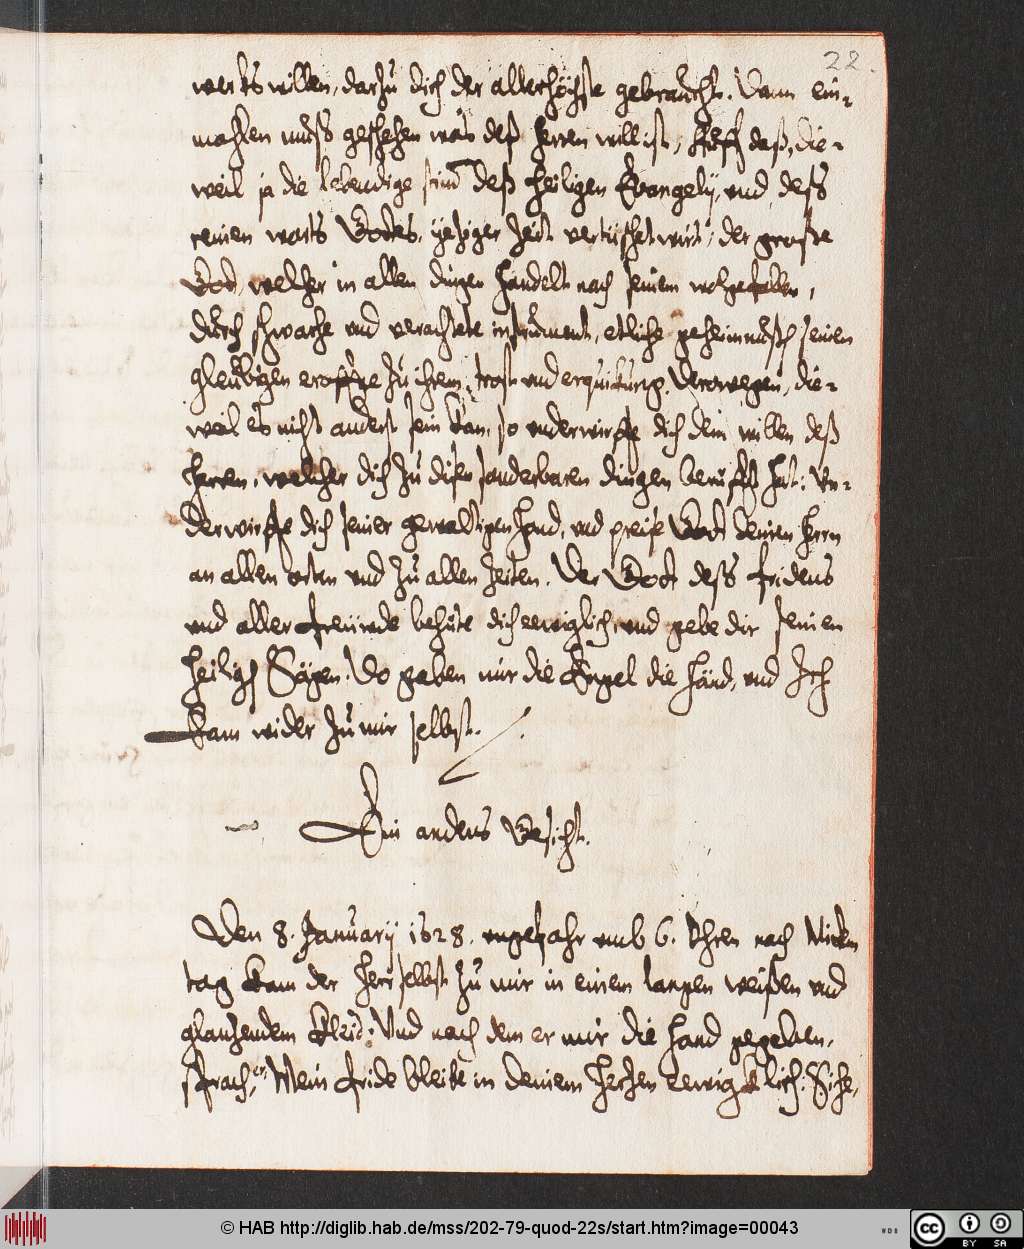 22.
werks willen, darzu dich der allerhöchste gebraucht. Dann ein-
mahlen muß geschehen was deß Herren will ist, daß, die-
weil ja die lebendige stim deß heiligen Evangelij, und deß
reinen worts Gottes, jetziger Zeit wirt, der große
Gott, welcher in allen dingen handelt nach seinem wolgefallen,
durch schwache und verachtete instrument, etliche geheimnuß seinen
gleubigen eröffne zu ihrem trost und erquickung. Derowegen, die-
weil es nicht anderst sein kan, so underwirffe dich dem willen deß
Herren, welcher dich zu disen sonderbaren dingen berufft hat: Un-
derwirffe dich seiner gewaltigen Hand, und preise Gott deinen Herrn
an allen orten und zu allen Zeiten. Der Gott deß fridens
und aller freünde behüte dich eewiglich und gebe dir seinen
heiligen Sägen. Do gaben mir die Engel die Händ, und Ich
kam wider zu mir selbst.
Ein anders Gesicht.
Den 8. Januarij 1628. ungefahr umb 6. Uhren nach Mitten
tag kam der Herr selbst zu mir in einem langen weißen und
glantzendem Kleid: Und nach dem er mir die Hand gegeben,
sprach er, Mein fride bleibe in deinem Hertzen eewigklich. Sihe,
© HAB http://diglib.hab.de/mss/202-79-quod-22s/start.htm?image=00043
WDB
cc BY SA